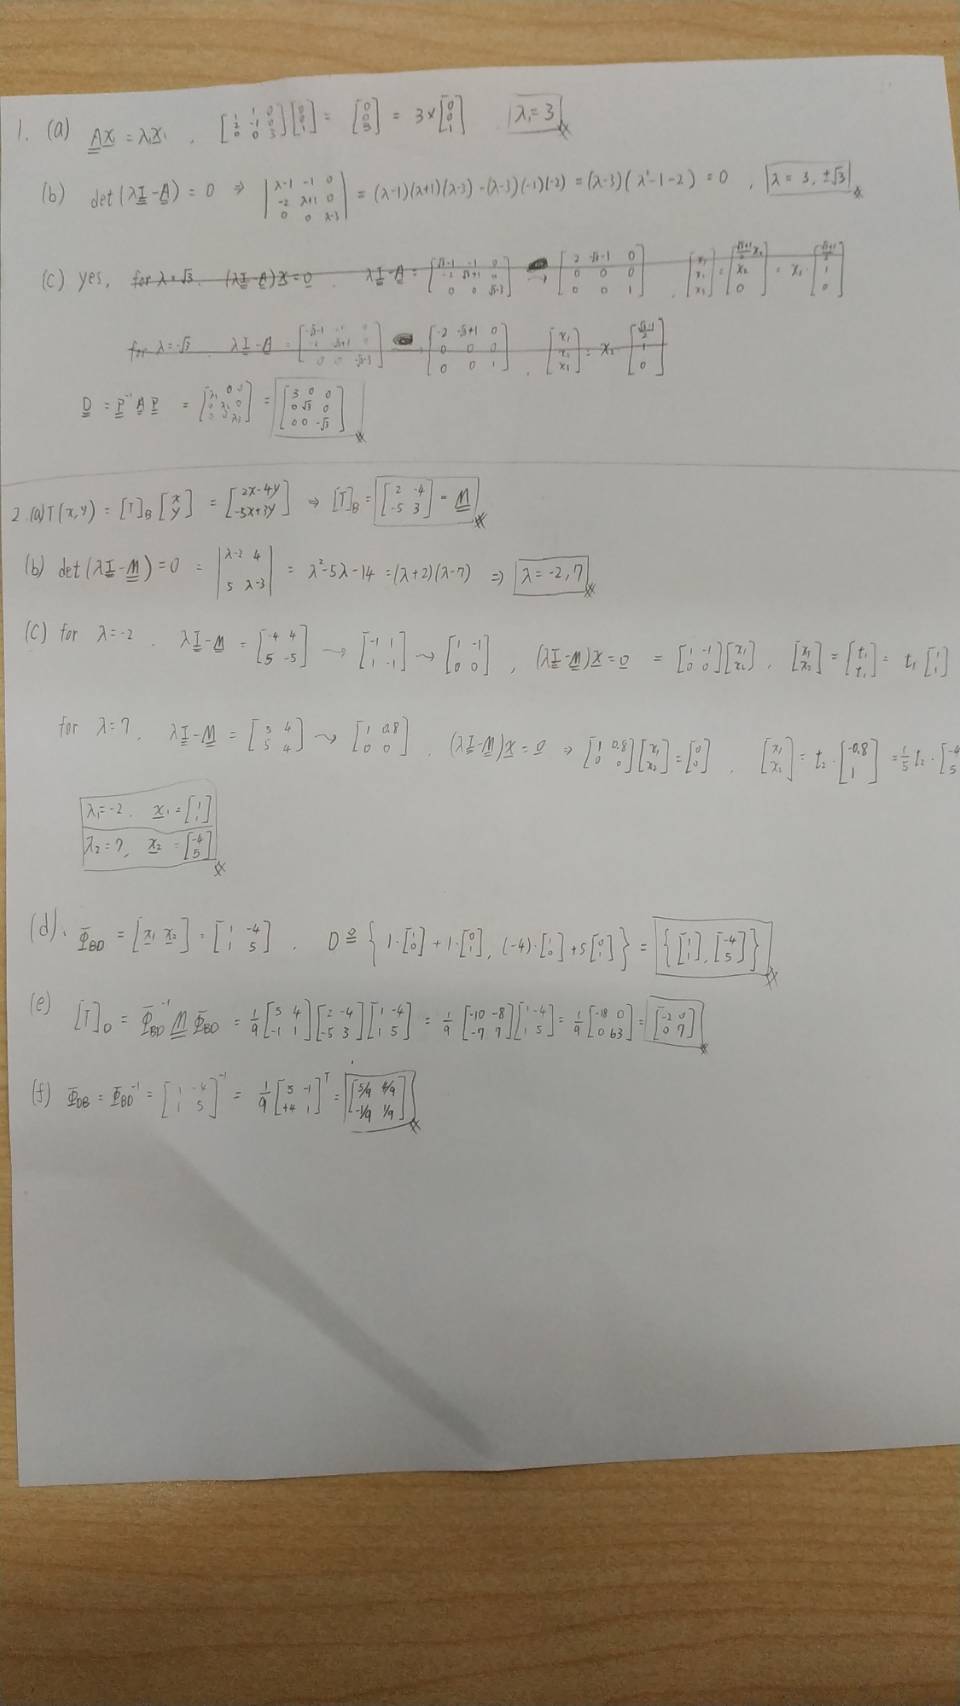 1. (a) A x₁ = λ₁x₁ , [1 1 0; 2 -1 0; 0 0 3][0; 0; 1] = [0; 0; 3] = 3 × [0; 0; 1] λ₁ = 3
(b) det(λI - A) = 0 ⇒ |λ-1 -1 0; -2 λ+1 0; 0 0 λ-3| = (λ-1)(λ+1)(λ-3) - (λ-3)(-1)(-2) = (λ-3)(λ²-1-2) = 0 , λ = 3, ±√3
(c) yes, for λ=√3. (λI-A)x = 0 λI-A = [√3-1 -1 0; -2 √3+1 0; 0 0 √3-3] → [2 -√3-1 0; 0 0 0; 0 0 1] , [x₁; x₂; x₃] = [(√3+1)/2 x₂; x₂; 0] = x₂ · [(√3+1)/2; 1; 0]
for λ=-√3 λI-A = [-√3-1 -1 0; -2 -√3+1 0; 0 0 -√3-3] → [-2 -√3+1 0; 0 0 0; 0 0 1] , = x₂
D = P⁻¹ A P = [λ₁ 0 0; 0 λ₂ 0; 0 0 λ₃] = [3 0 0; 0 √3 0; 0 0 -√3]
2. (a) T(x,y) = [T]B [x; y] = [2x-4y; -5x+3y] ⇒ [T]B = [2 -4; -5 3] = M
(b) det(λI-M) = 0 = |λ-2 4; 5 λ-3| = λ²-5λ-14 = (λ+2)(λ-7) ⇒ λ = -2, 7
(c) for λ=-2 . λI-M = [-4 4; 5 -5] → [-1 1; 1 -1] → [1 -1; 0 0] , (λI-M)x = 0 = [1 -1; 0 0][x₁; x₂] , [x₁; x₂] = [t₁; t₁] = t₁ [1; 1]
for λ=7, λI-M = [5 4; 5 4] → [1 0.8; 0 0] . (λI-M)x = 0 ⇒ [1 0.8; 0 0][x₁; x₂] = [0; 0] , [x₁; x₂] = t₂ · [-0.8; 1] = 1/5 t₂ · [-4; 5
λ₁ = -2 . x₁ = [1; 1]
λ₂ = 7, x₂ = [-4; 5]
(d). ΦBD = [x₁ x₂] = [1 -4; 1 5] . D ≅ {1·[1; 0] + 1·[0; 1], (-4)·[1; 0] + 5[0; 1]} = {[1; 1], [-4; 5]}
(e) [T]D = ΦBD⁻¹ M ΦBD = 1/9 [5 4; -1 1][2 -4; -5 3][1 -4; 1 5] = 1/9 [-10 -8; -7 7][1 -4; 1 5] = 1/9 [-18 0; 0 63] = [-2 0; 0 7]
(f) ΦDB = ΦBD⁻¹ = [1 -4; 1 5]⁻¹ = 1/9 [5 -1; +4 1]ᵀ = [5/9 4/9; -1/9 1/9]